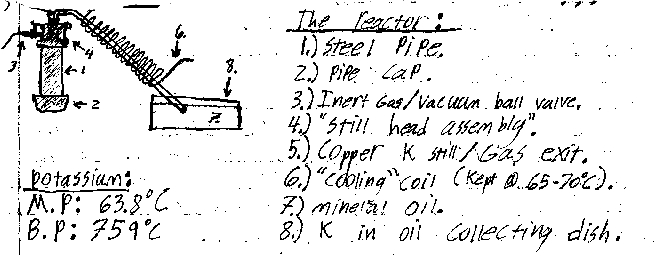 The reactor:
1.) Steel Pipe.
2.) Pipe Cap.
3.) Inert Gas/Vacuum ball valve.
4.) "Still head assembly".
5.) Copper K still/Gas exit.
6.) "Cooling" coil (Kept @ 65-70°C).
7.) mineral oil.
8.) K in oil collecting dish.
6.
8.
3
4
1
2
7
potassium:
M.P: 63.8°C
B.P: 759°C